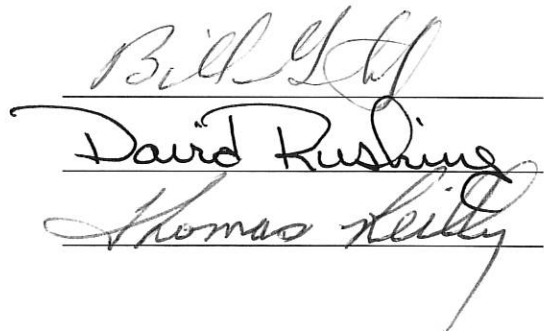 Bill
David Rushing
Thomas Reilly